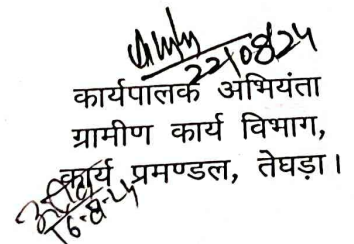 22/08/24
कार्यपालक अभियंता
ग्रामीण कार्य विभाग,
कार्य प्रमण्डल, तेघड़ा।
16-8-24